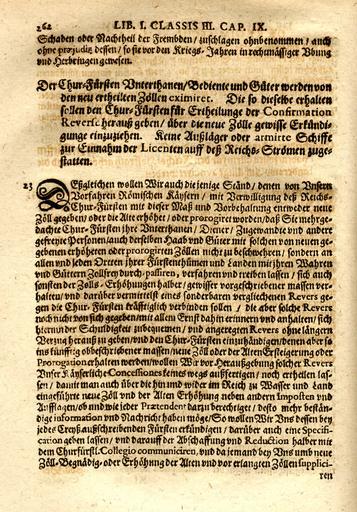 262 LIB. I. CLASSIS III. CAP. IX.
Schaden oder Nachtheil der Frembden / zuschlagen ohnbenommen / auch
ohne præjudiz dessen / so sie vor den Kriegs-Jahren in rechtmässiger Übung
und Herbringen gewesen.
Der Chur-Fürsten Unterthanen / Bediente und Güter werden von
den neu ertheilten Zöllen eximiret. Die so dieselbe erhalten
sollen den Chur-Fürsten für Ertheilung der Confirmation
Reverse herauß geben / über die neue Zölle gewisse Erkündi-
gunge einzuziehen. Keine Außläger oder armirte Schiffe
zur Einnahm der Licenten auff des Reichs-Strömen zuge-
statten.
23 DEßgleichen wollen Wir auch diejenige Ständ / denen von Unsern
Vorfahren Römischen Käysern / mit Verwilligung deß Reichs-
Chur-Fürsten mit dieser Maß und Vorbehaltung entweder neue
Zöll gegeben / oder die Alte erhöhet / oder prorogiret worden / daß Sie mehrge-
dachte Chur-Fürsten ihre Unterthanen / Diener / Zugewandte und andere
gefreyte Personen / auch derselben Haab und Güter mit solchen von neuen ge-
gebenen erhöheten oder prorogirten Zöllen nicht zu beschwehren / sondern an
allen und jeden Orten ihrer Fürstenthümen und Landen mit ihren Wahren
und Gütern Zollfrey durch-passiren, verfahren und treiben lassen / sich auch
sonsten der Zolls-Erhöhungen halber / gewisser vorgeschriebener massen ver-
halten / und darüber vermittelst eines sonderbaren verglichenen Revers ge-
gen die Chur-Fürsten kräfftiglich verbinden sollen / die aber solche Revers
noch nicht von sich gegeben mit allem Ernst dahin erinnern und anhalten / sich
hierin der Schuldigkeit zubequemen / und angeregten Revers ohne längern
Verzug herauß zu geben / und den Chur-Fürsten einzuhändigen / denen aber so
ins künfftig obbeschriebener massen / neue Zöll oder der Alten Ersteigerung oder
Prorogation erhalten werden / wollen Wir vor Heraußgebung solcher Revers
Unser Käyserliche Concessiones keines wegs außfertigen / noch ertheilen las-
sen / damit man auch über die hin und wider im Reich zu Wasser und Land
eingeführte neue Zöll und der Alten Erhöhung neben andern Imposten und
Aufflagen / ob und wie jeder Prætendent darzu berechtiget / desto mehr bestän-
dige information und Nachricht haben möge / So wollen Wir Uns dessen bey
jedes Creyß außschreibenden Fürsten erkündigen / darüber auch eine Specifi-
cation geben lassen / und darauff der Abschaffung und Reduction halber mit
dem Churfürstl. Collegio communiciren, und da jemand bey Uns umb neue
Zöll-Begnädig- oder Erhöhung der Alten und vor erlangten Zöllen supplici-
ren